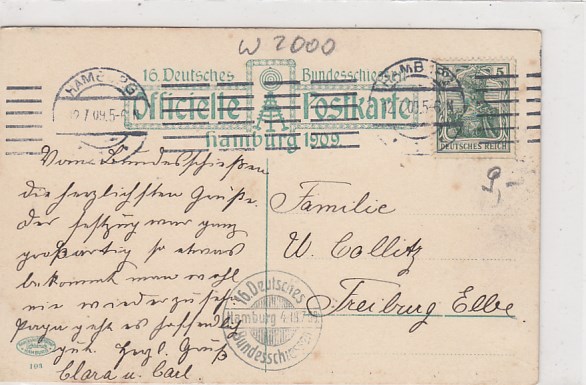 W 2000
16. Deutsches Bundesschiessen
Officielle Postkarte
Hamburg 1909.
HAMBURG
12.7.09.5-6N
HAMBURG
12.7.09.5-6N
5
DEUTSCHES REICH
9,-
Vom Bundesschießen
die herzlichsten Grüße.
Der Festzug war ganz
großartig so etwas
bekommt man wohl
nie wieder zu seh
Papa geht es hoffentlich
gut. Herzl. Gruß
Clara u. Carl.
Familie
W. Collitz
Freiburg Elbe.
16. Deutsches
Hamburg 4-18.7.
Bundesschiessen
104